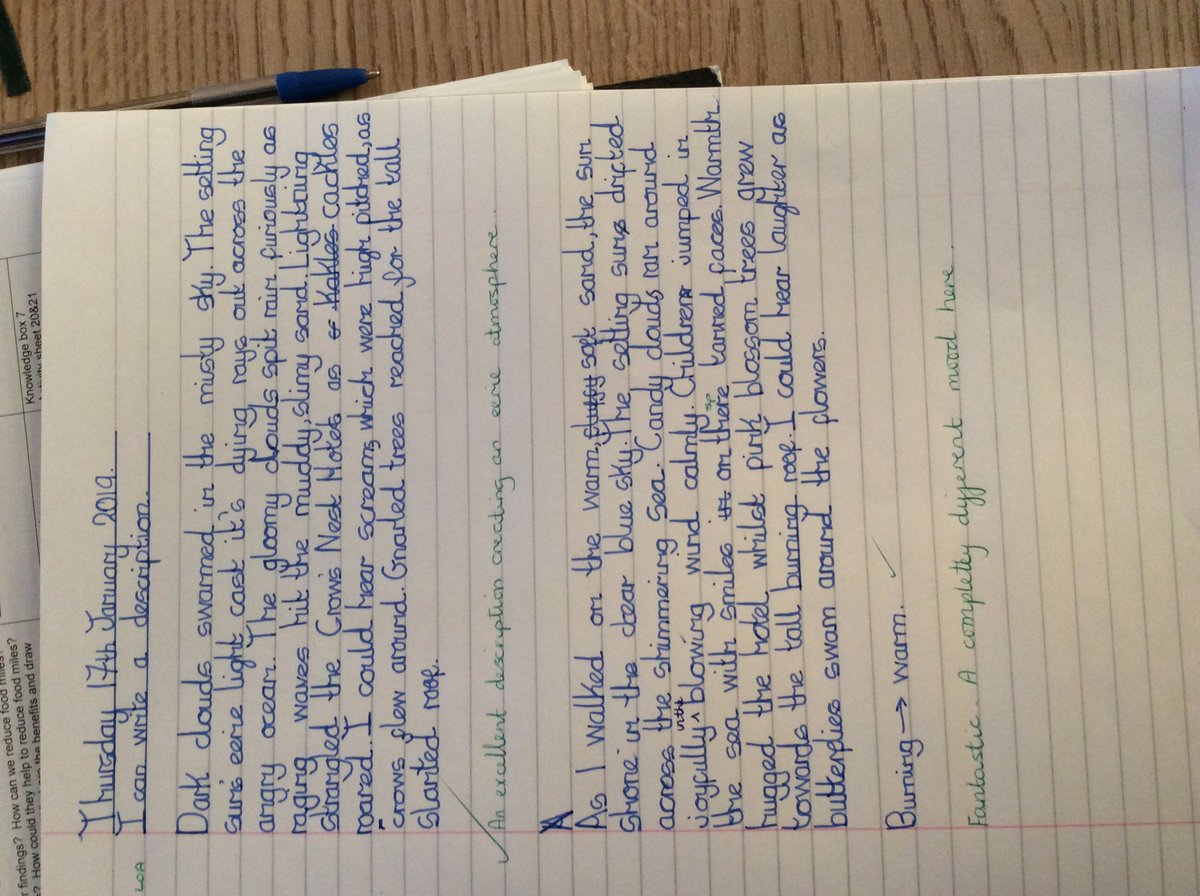 Knowledge box 7
sheet 20&21
findings? How can we reduce food miles?
? How could they help to reduce food miles?
the benefits and draw
LOA
Thursday 17th January 2019.
I can write a description.
Dark clouds swarmed in the misty sky. The setting
suns eerie light cast it's dying rays out across the
angry ocean. The gloomy clouds spit rain furiously as
raging waves hit the muddy, slimy sand. Lightning
strangled the Crows Nest Hotel as cackles
roared. I could hear screams which were high pitched, as
crows flew around. Gnarled trees reached for the tall
slanted roof.
An excellent description creating an eerie atmosphere.
A
As I walked on the warm, soft sand, the sun
shone in the clear blue sky. The setting suns drifted
across the shimmering sea. Candy clouds ran around
joyfully in the blowing wind calmly. Children jumped in
the sea with smiles on there sp tanned faces. Warmth
hugged the hotel, whilst pink blossom trees grew
towards the tall burning roof. I could hear laughter as
butterflies swam around the flowers.
Burning → warm.
Fantastic. A completly different mood here.